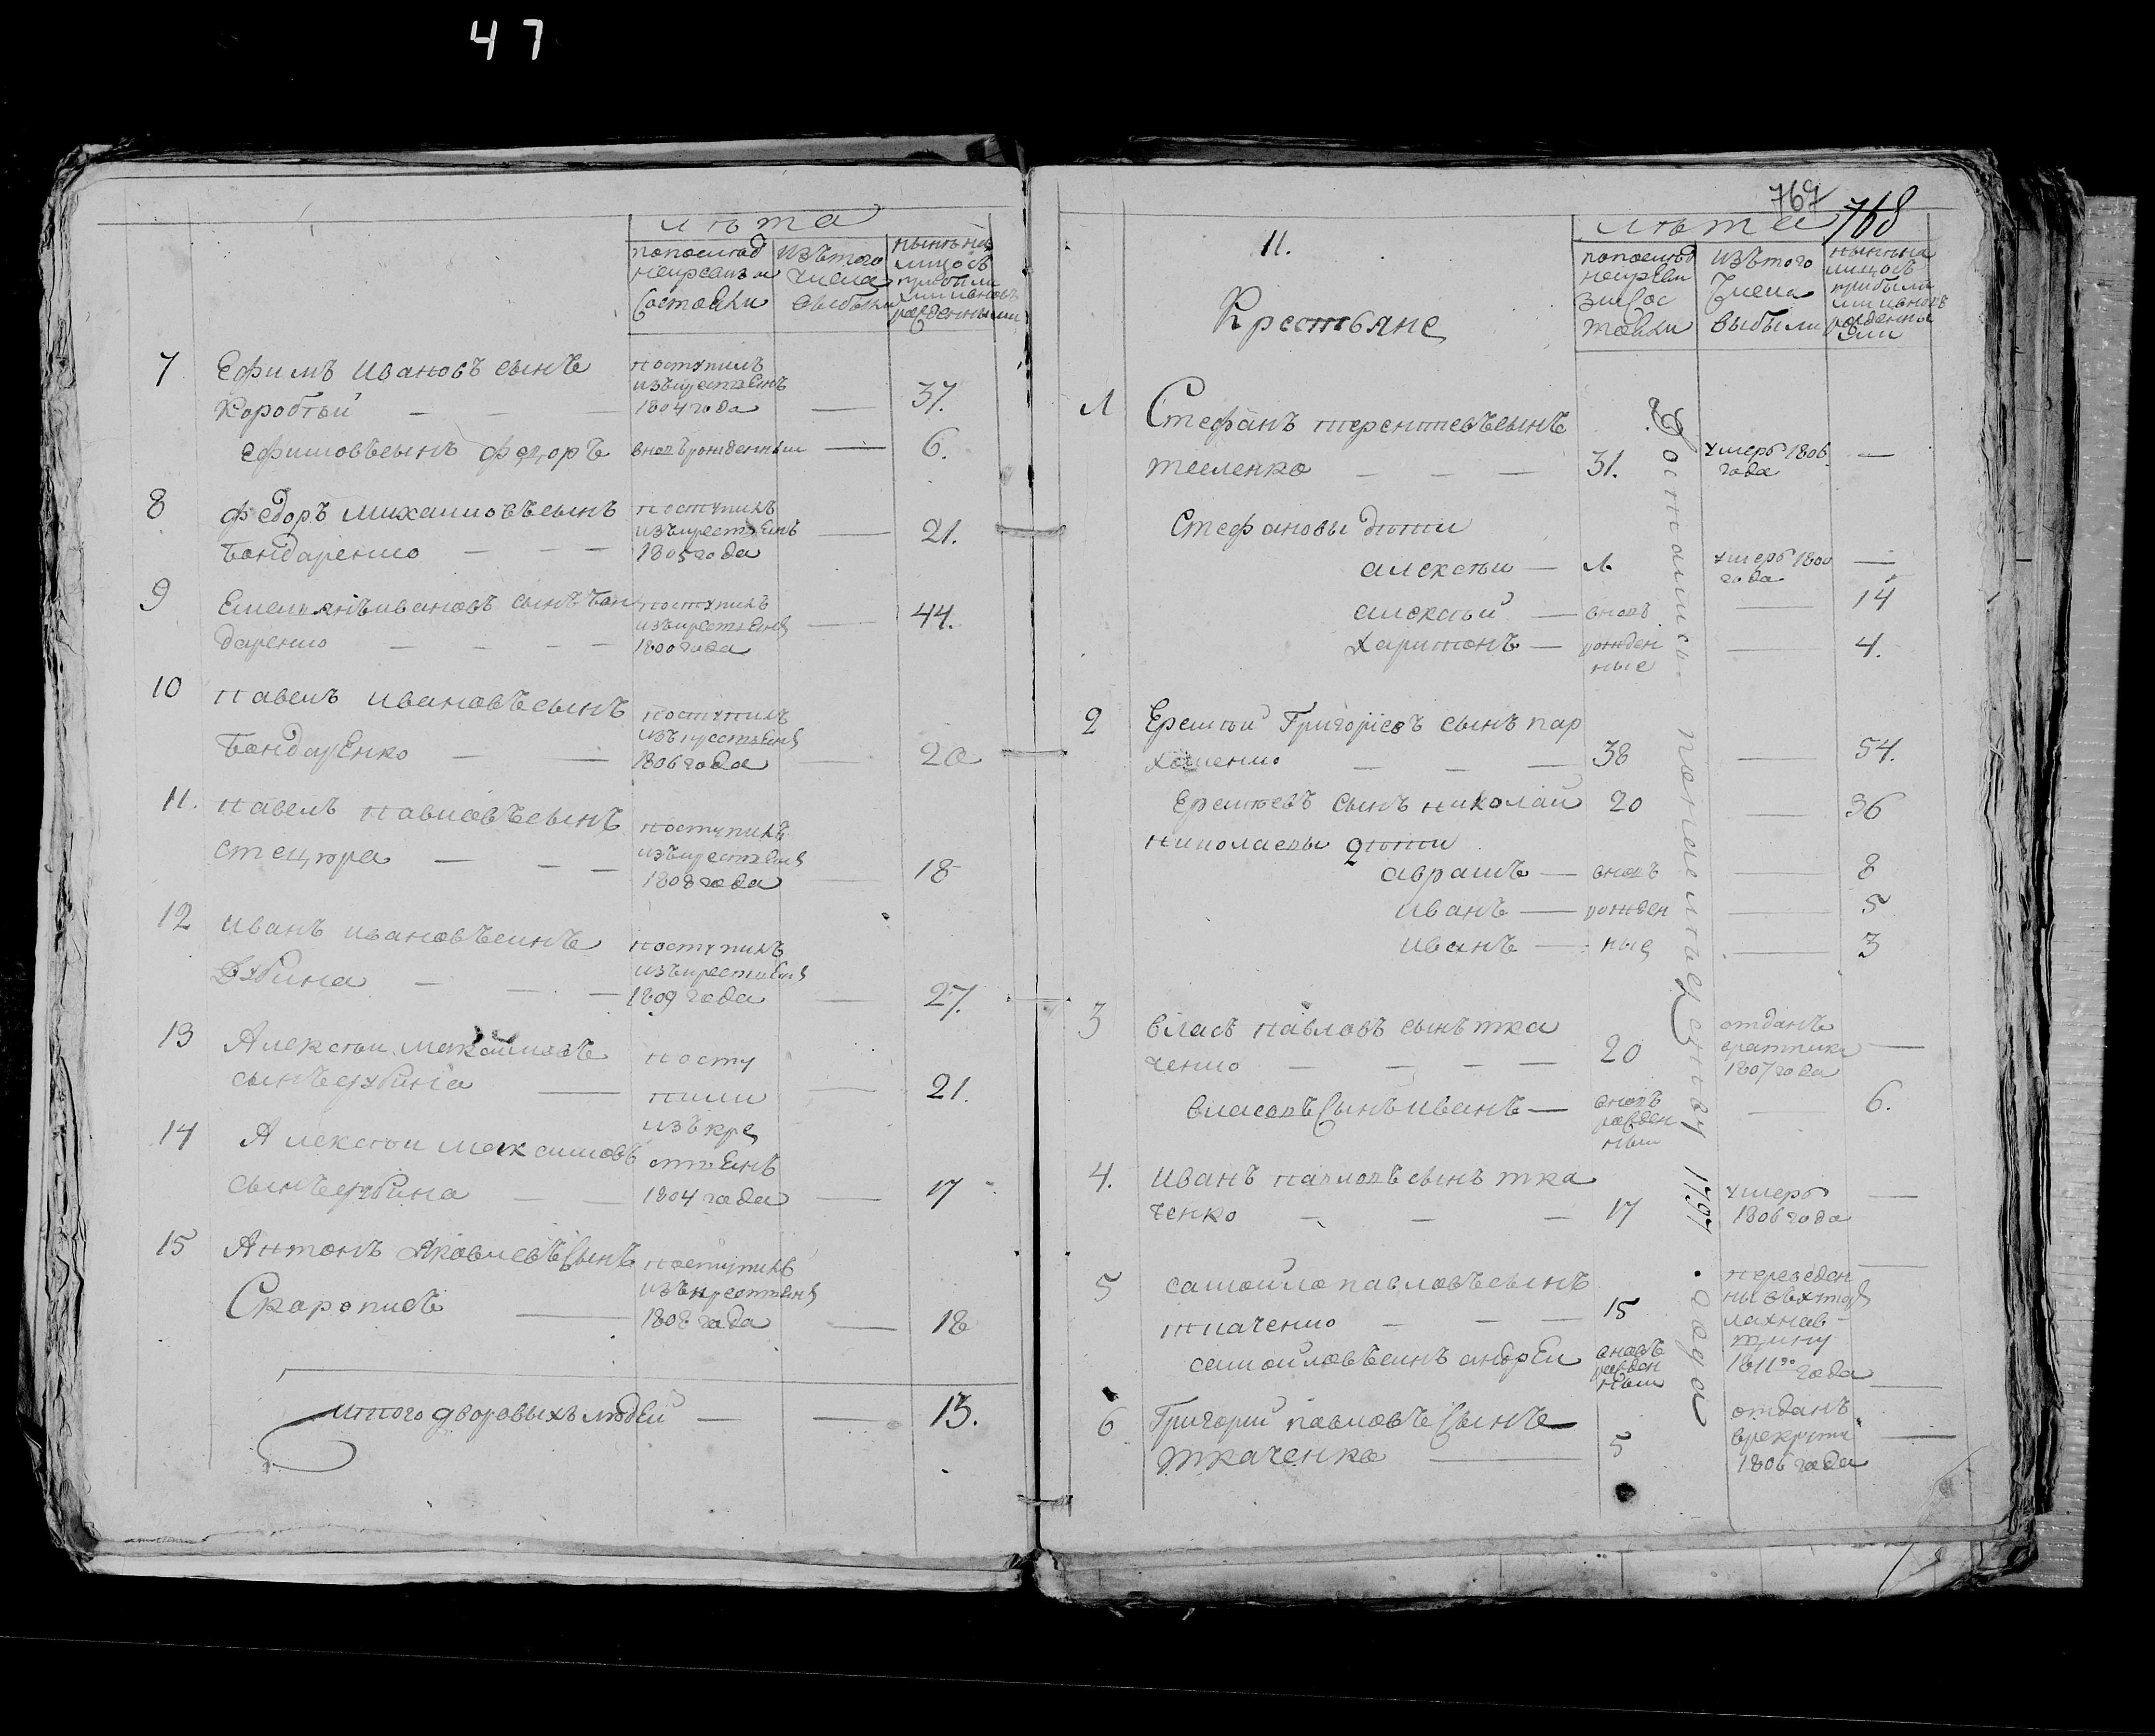 47
лѣта
попослѣд
ней ревизіи
состояли
изътого
числа
выбыли
нынѣ на
лицо съ
прибыли
ми и вновь
рожденными
7 Ефимъ Ивановъ сынъ
Коробтъй — —
поступилъ
изъкрестьянъ
1804 года — 37.
Ефимовъ сынъ Федоръ вновь рожденный — 6.
8 Федоръ Михаиловъ сынъ
Бондаренко — — —
поступилъ
изъкрестьянъ
1805 года — 21.
9 Емельянъ Ивановъ сынъ Бон
даренко — — — —
поступилъ
изъкрестьянъ
1800 года — 44.
10 Павелъ Ивановъ сынъ
БондарЕнко — —
поступилъ
изъкрестьянъ
1806 года — 20
11. Павелъ Павловъ сынъ
Стецюра — — —
поступилъ
изъкрестьянъ
1808 года — 18
12 Иванъ Ивановъ синъ
Дубина — — —
поступилъ
изъкрестьянъ
1809 года — 27.
13 Алексѣи Максимовъ
сынъ Дубина —
14 Алексѣи Максимовъ
сынъ Дубина — —
посту
пили
изъ кре
стьянъ
1804 года
— 21.
— 17
15 Антонъ Яковлевъ Сынъ
Скоропись —
поступилъ
изъкрестьянъ
1808 года — 18
Итого дворовыхъ людей — — 15.
767 768
11.
Крестьяне
лѣта
попослѣд
ней реви
зіи сос
тояли
изътого
числа
выбыли
нынѣ на
лицо съ
прибыли
ми и вновь
рожденны
ми
Достались по наслѣдству 1797 года
1 Стефанъ Терентевъ сынъ
Тесленко — — — 31. умеръ 1806
года —
Стефановы дѣти
Алексѣи — 1 умеръ 1800
года —
Алексѣй — вновь — 14
Харитонъ — рожден
ные — 4.
2 Еремѣй Григоріевъ сынъ Пар
хоменко — — — 38 — 54.
Еремѣевъ сынъ Николаи 20 — 36
Николаевы дѣти
Аврамъ — вновь — 8
Иванъ — рожден — 5
Иванъ — ные — 3
3 Власъ Павловъ сынъ Тка
ченко — — — — 20
отданъ
вратники
1807 года —
Власовъ Сынъ Иванъ — вновь
рожден
ный — 6.
4. Иванъ Павловъ сынъ Тка
ченко — — — 17 умеръ
1806 года —
5 Самойло Павловъ сынъ
Ткаченко — — — 15
Самойловъ синъ Андрей вновь
рожден
ный
переведен
ны
1811го года —
6 Григорий Павловъ Сынъ
Ткаченко — 5
отданъ
врекруты
1806 года —